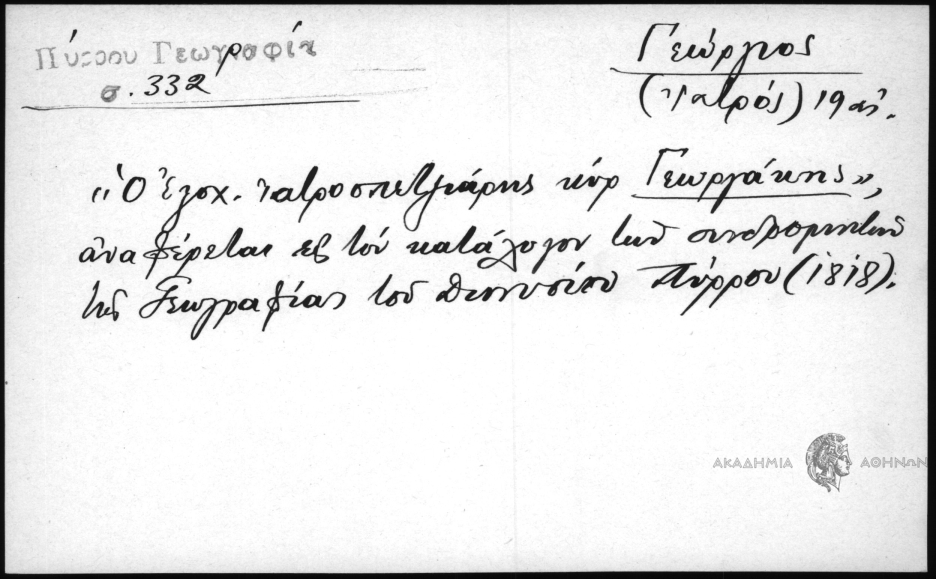 Πύρρου Γεωγραφία
σ. 332
Γεώργιος
(Ἰατρός) 19 αἰ.
«Ὁ Ἐλλοχ. ἰατροσπετζιάρης κὺρ Γεωργάκης»,
ἀναφέρεται εἰς τὸν κατάλογον τῶν συνδρομητῶν
τῆς Γεωγραφίας τοῦ Διονυσίου Πύρρου (1818).
ΑΚΑΔΗΜΙΑ ΑΘΗΝΩΝ